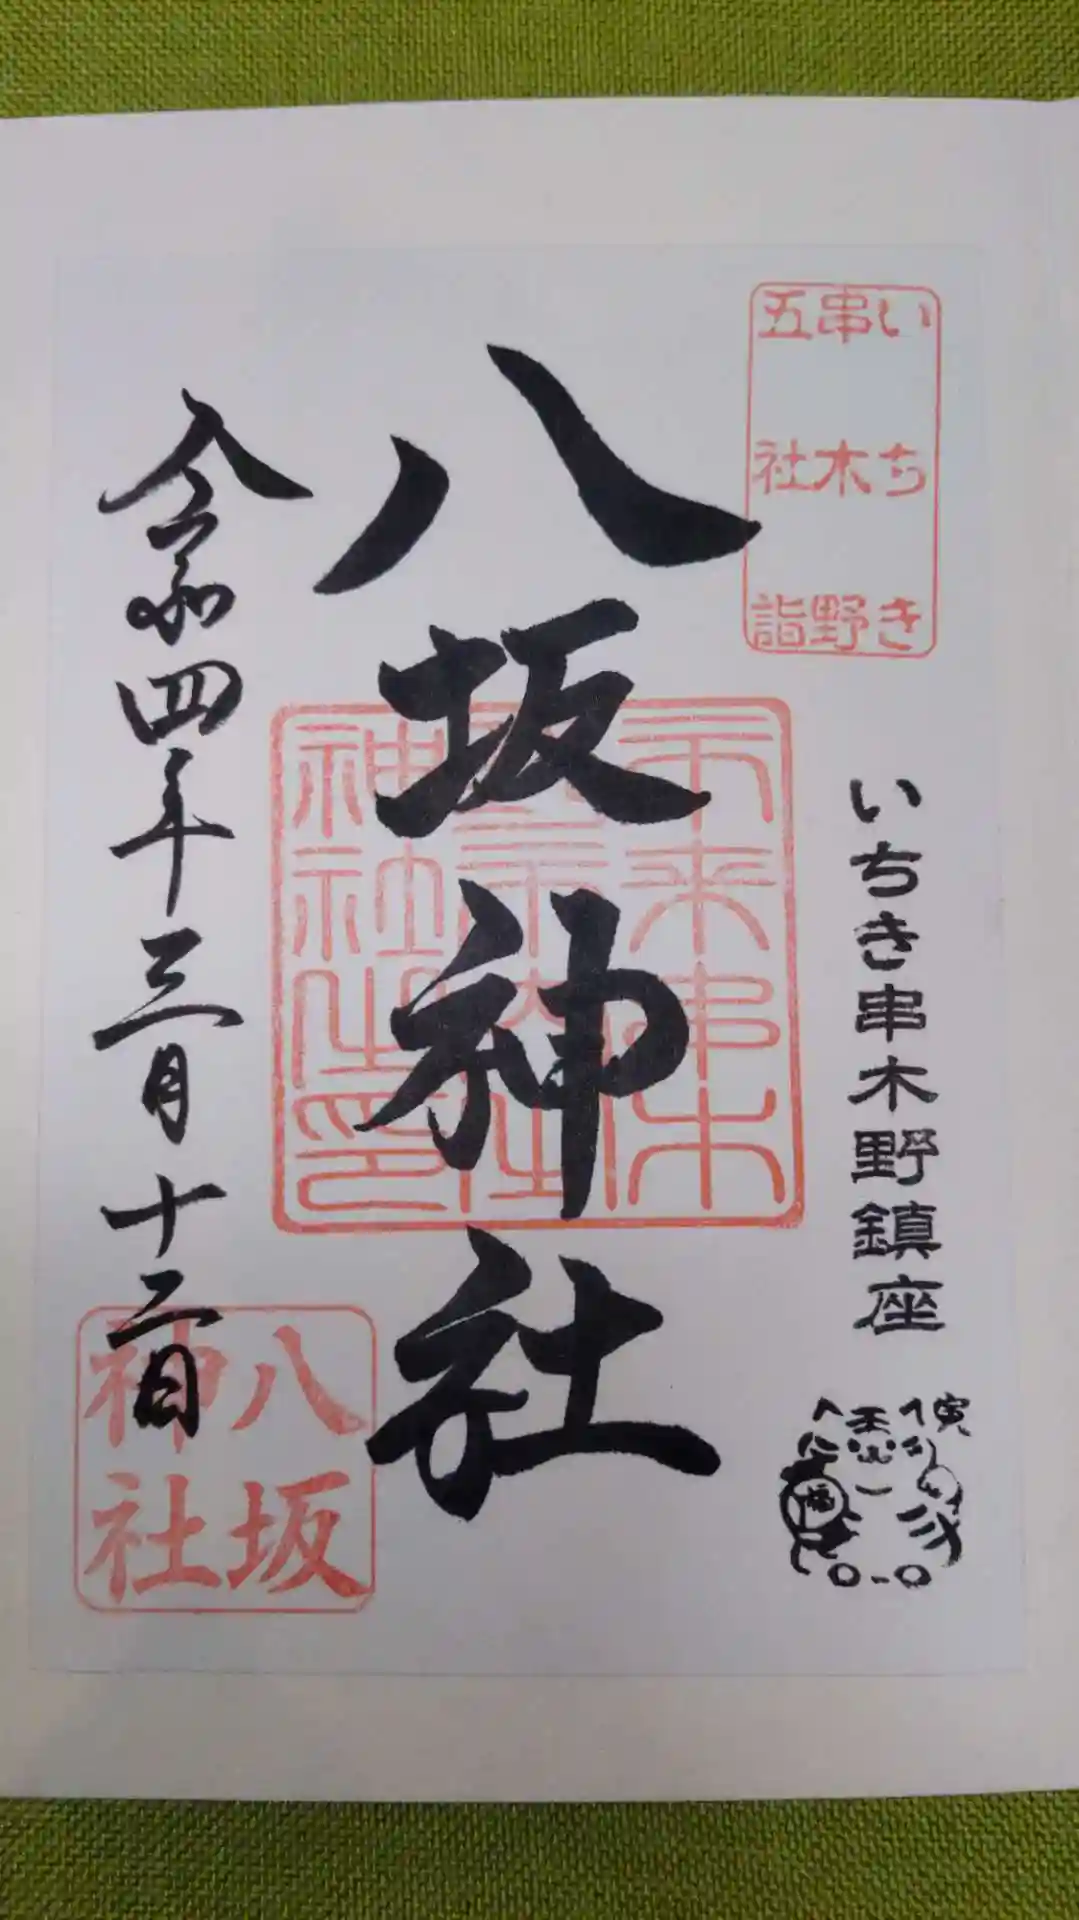 いちき
串木野
五社詣
いちき串木野鎮座
寅
福
八坂神社
八坂
神社
令和四年三月十二日